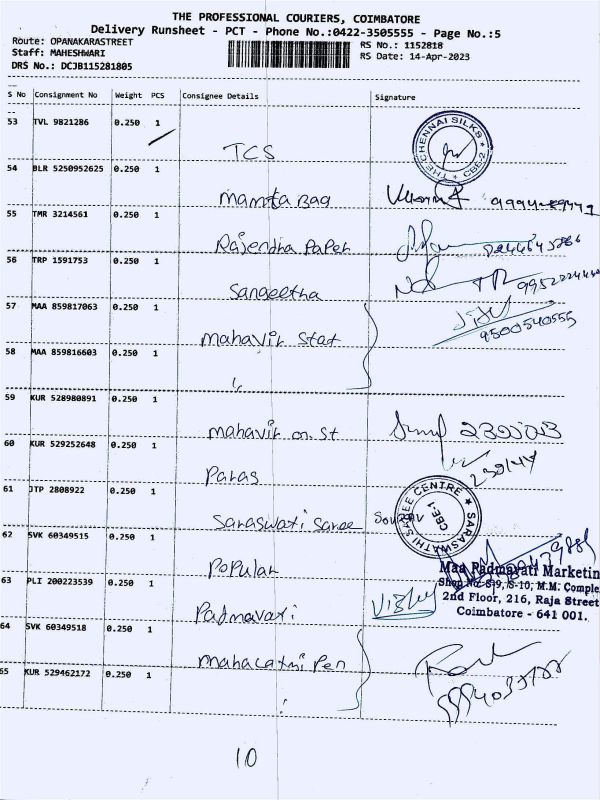 THE PROFESSIONAL COURIERS, COIMBATORE
Delivery Runsheet - PCT - Phone No.:0422-3505555 - Page No.:5
Route: OPANAKARASTREET
Staff: MAHESHWARI
DRS No.: DCJB115281805
RS No.: 1152818
RS Date: 14-Apr-2023
S No Consignment No Weight PCS Consignee Details Signature
53 TVL 9821286 0.250 1
TCS
THE CHENNAI SILKS CBE-2
54 BLR 5250952625 0.250 1
mamta Bag
55 TMR 3214561 0.250 1
Rajendha Paper
56 TRP 1591753 0.250 1
Sangeetha
57 MAA 859817063 0.250 1
mahavir Stat
9500540555
58 MAA 859816603 0.250 1
59 KUR 528980891 0.250 1
mahavir on St
60 KUR 529252648 0.250 1
Paras
61 JTP 2808922 0.250 1
Saraswati Saree
SARASWATHI SAREE CENTRE CBE-1
62 SVK 60349515 0.250 1
Popular
63 PLI 200223539 0.250 1
Padmavati
Maa Padmavati Marketin
Shop No. S-9, S-10, M.M. Comple
2nd Floor, 216, Raja Street
Coimbatore - 641 001.
64 SVK 60349518 0.250 1
mahalaxmi Pen
65 KUR 529462172 0.250 1
10